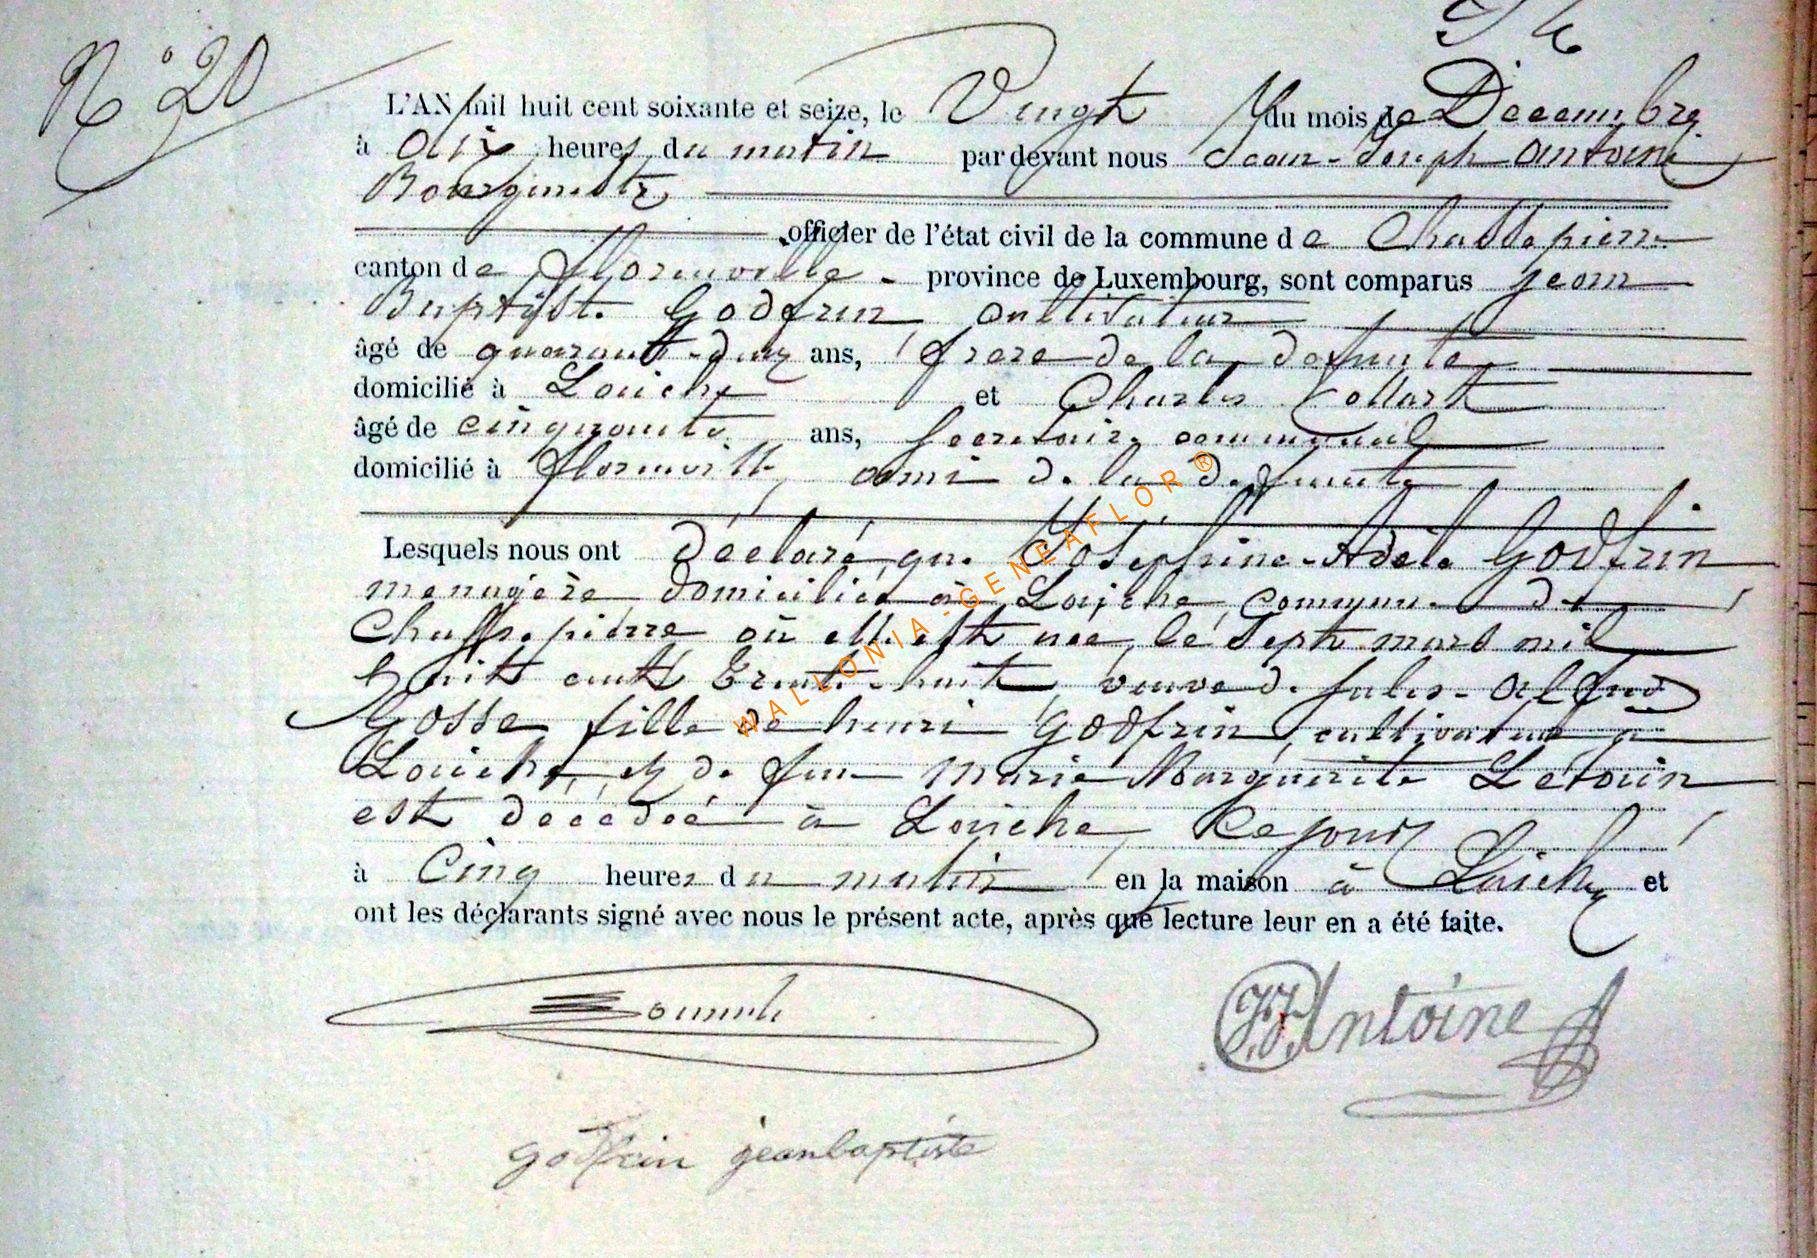 N° 20
L'AN mil huit cent soixante et seize, le Vingt du mois de Décembre
à dix heures du matin par devant nous Jean-Joseph Antoine
Bourgmestre
officier de l'état civil de la commune de Chassepierre
canton de Florenville province de Luxembourg, sont comparus Jean
Baptiste Godfrin, cultivateur
âgé de quarante-deux ans, frere de la defunte
domicilié à Laiche et Charles Collart
âgé de cinquante ans, secretaire communal
domicilié à florenville ami de la defunte
Lesquels nous ont déclaré que Joséphine-Adèle Godfrin
menagère, domiciliée à Laiche, commune de
Chassepierre où elle est née, le sept mars mil
huit cent trente-huit, veuve de Jules-Alfred
Gosse, fille de henri Godfrin, cultivateur à
Laiche, et de feue Marie Marguerite Letouin
est décédée à Laiche, ce jour
à Cinq heures du matin en la maison à Laiche et
ont les déclarants signé avec nous le présent acte, après que lecture leur en a été faite.
J.J. Antoine
godfrin jeanbaptiste
WALLONIA-GENEAFLOR ®